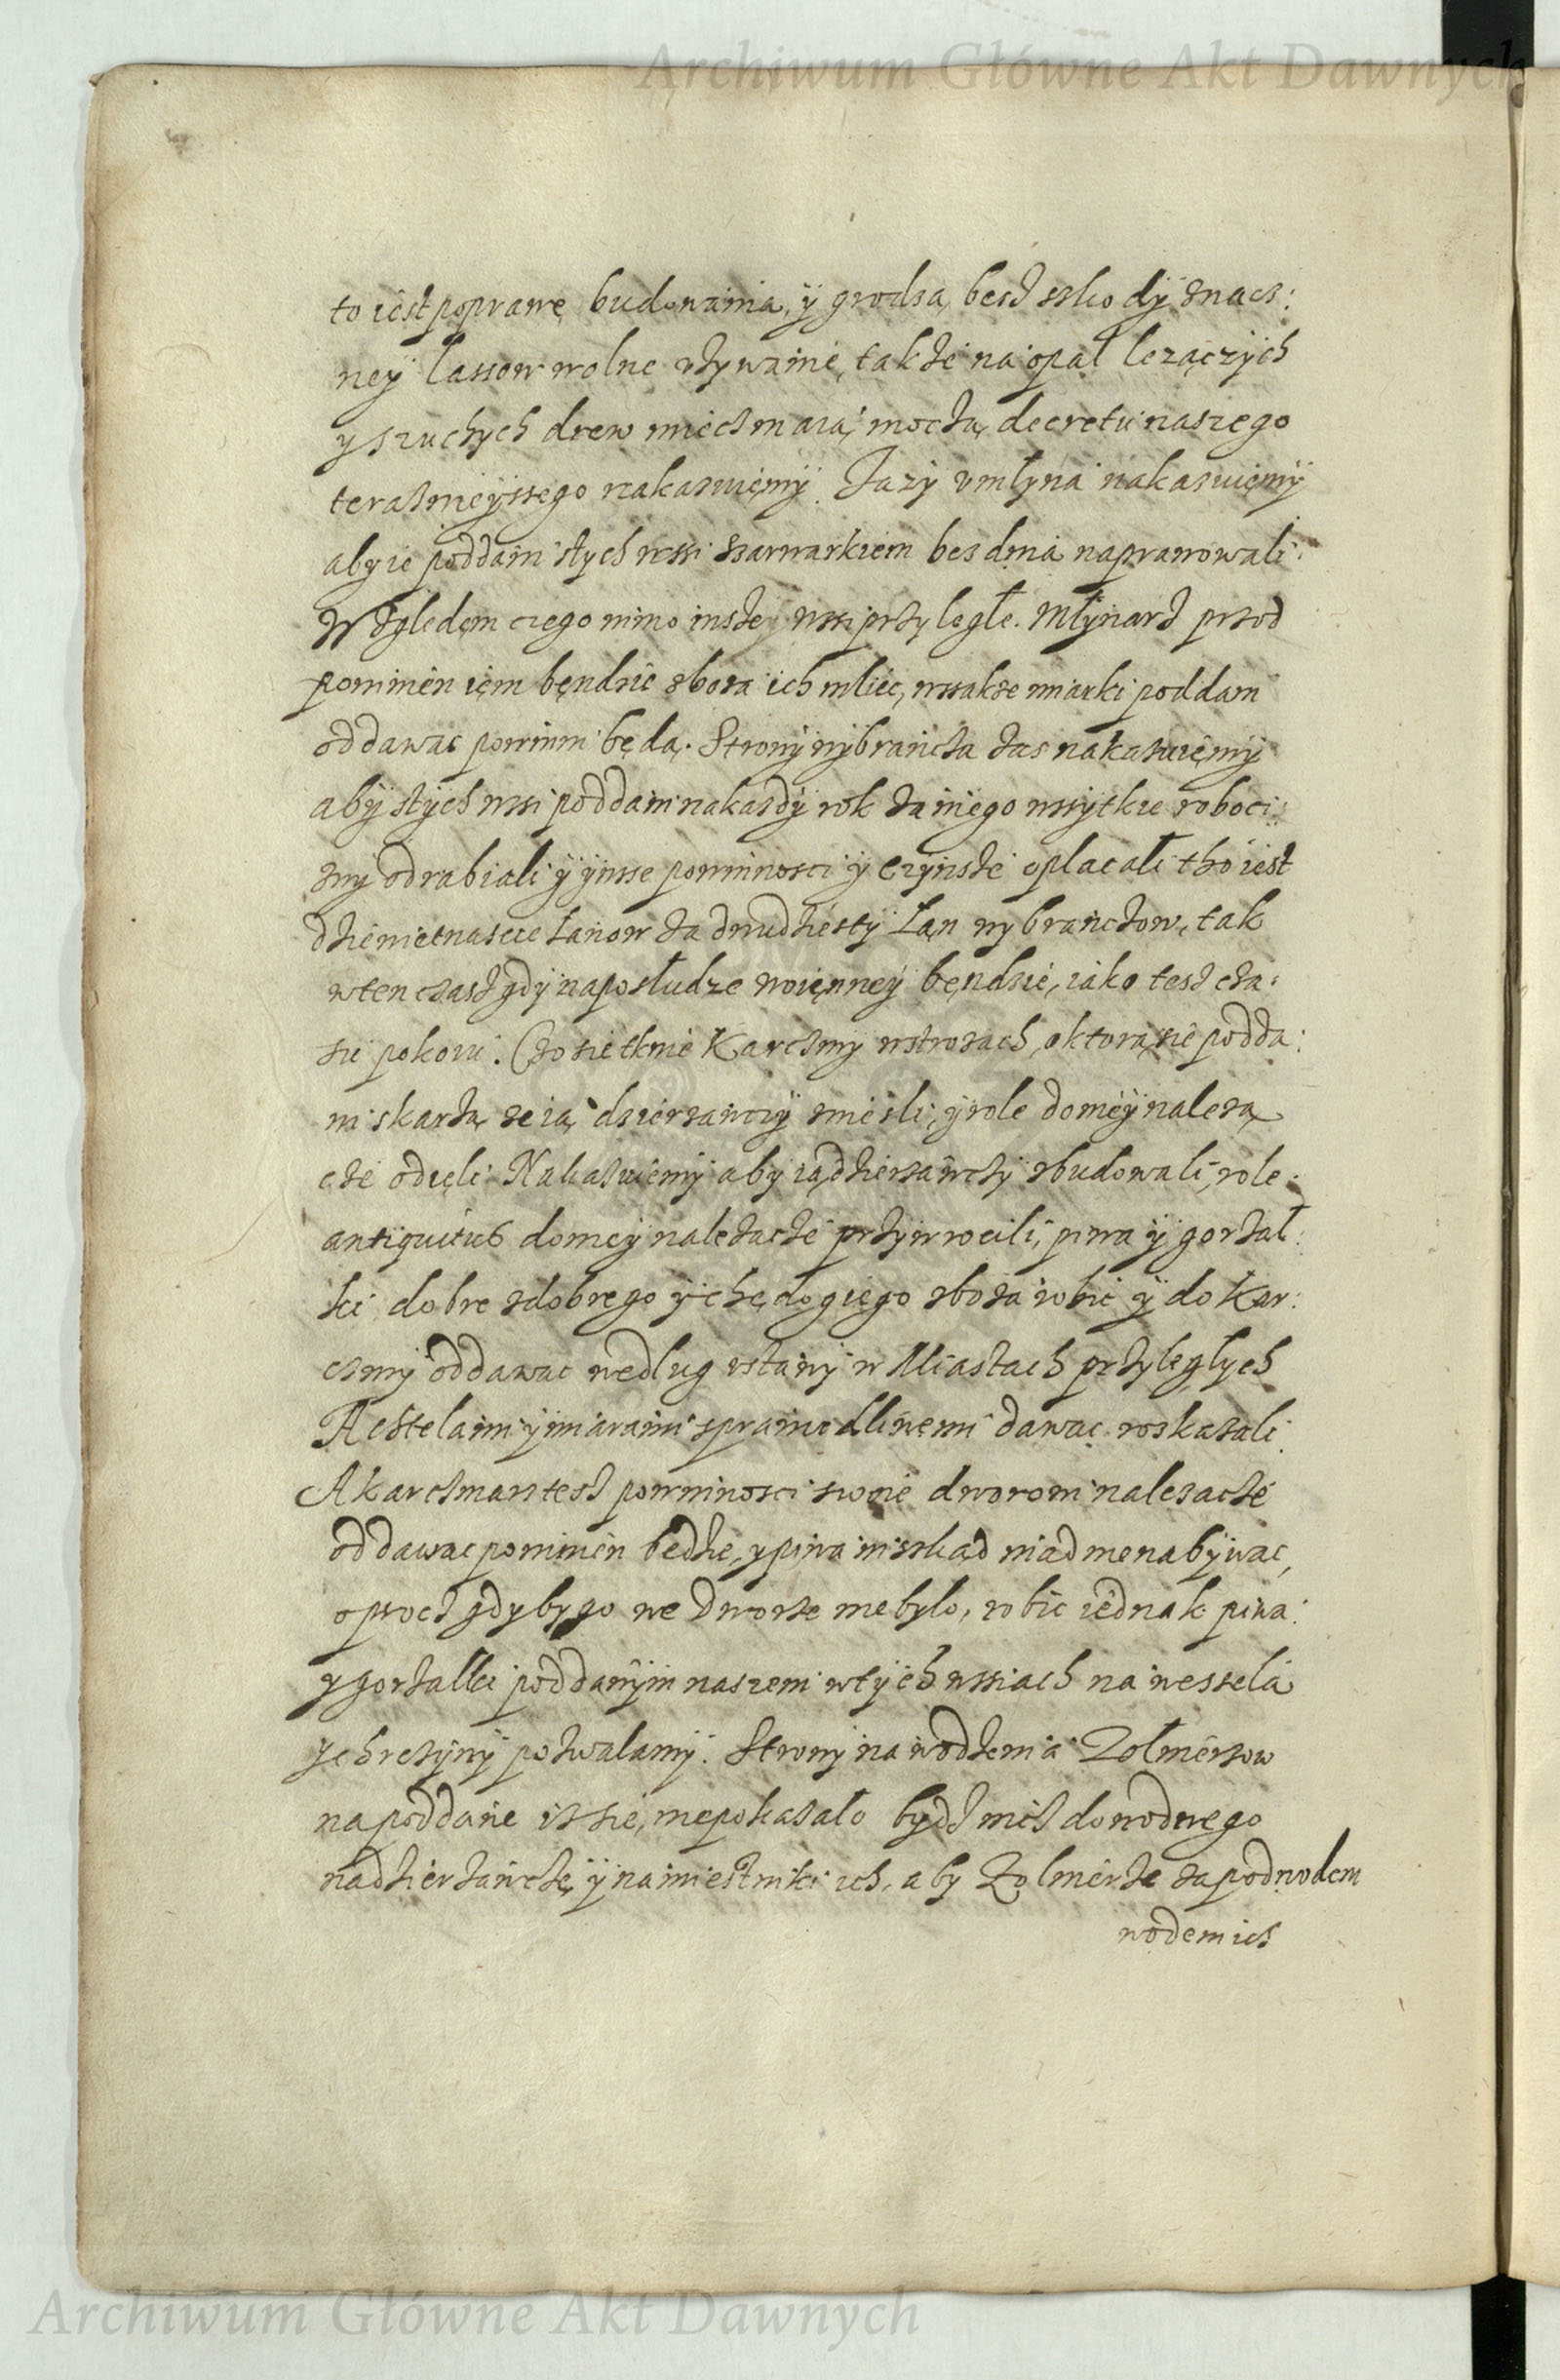 Archiwum Główne Akt Dawnych
to iest poprawę budowania, ÿ grodza, besz szkodÿ znacz:
neÿ lassow wolne vżywanie, także na opał lezączÿch
y szuchych drew miecz maią, moczą decretu naszego
teraznieÿssego nakazuięmÿ. Jazÿ v młyna nakazuięmÿ
aby ie poddani stych wssi szarwarkiem bez dnia naprawowali.
Względęm czego mimo insze wssi przyległe. Młÿnarz przod
powinien ięm będzie zboza ich mliec, wssakze miarki poddani
oddawac powinni będą. Stronÿ wÿbrańcza zas nakazuięmÿ
abÿ stÿch wssi poddani na kazdÿ rok za niego wssÿtkie roboci:
znÿ odrabiali ÿ ÿnsse powinnosci ÿ czÿnsze opłacali tho iest
dziewietnascie Łanow za dwudziestÿ Łan wybrańczow, tak
w ten czasz gdÿ na posłudze woięnneÿ będzie, iako tesz cza:
su pokoiu. Czo sie tknie Karczmÿ w strozach, o ktorą sie podda:
ni skarzą ze ią dzierzawczÿ znieśli, ÿ role do nieÿ nalezą
cze odięli. Nakazuięmÿ aby ią dzierzawczÿ zbudowali, role
antiquitus do nieÿ należacze przÿwrocili, piwa ÿ gorzał:
ki dobre z dobrego ÿ chędogiego zboza robic ÿ do Kar:
czmÿ oddawac według vstawÿ w Miastach przÿległych
A cztelami ÿ miarami sprawiedliwemi dawac roskazali.
A karczmarz tesz powinnosci swoie dworom nalezacze
oddawac powinien bedzie, y piwa inszkąd niadnie nabÿwac,
oprocz gdyby go we dworze niebyło, robic iednak piwa
y gorzałki poddanÿm naszem w tÿch wssiach na wessela
y chrzcinÿ pozwalamÿ. Stronÿ nawodzenia Zołnierzow
na poddane iz sie niepokazało bydz nicz dowodnego
na dzierzawcze ÿ namiestniki ich, aby Zołnierze za podwodem
wodem ich
Archiwum Główne Akt Dawnych